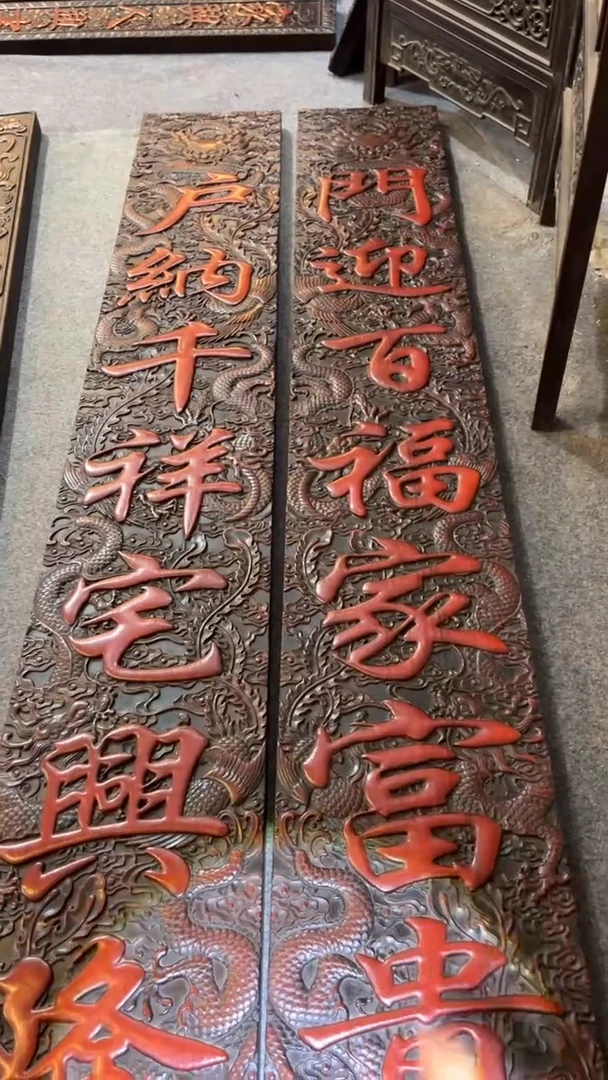 門迎百福家富貴
戶納千祥宅興隆